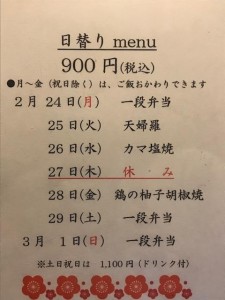 日替り menu
900 円(税込)
●月〜金（祝日除く）は、ご飯おかわりできます
2月 24日(月) 一段弁当
25日(火) 天婦羅
26日(水) カマ塩焼
27日(木) 休み
28日(金) 鶏の柚子胡椒焼
29日(土) 一段弁当
3月 1日(日) 一段弁当
※土日祝日は 1,100円（ドリンク付）